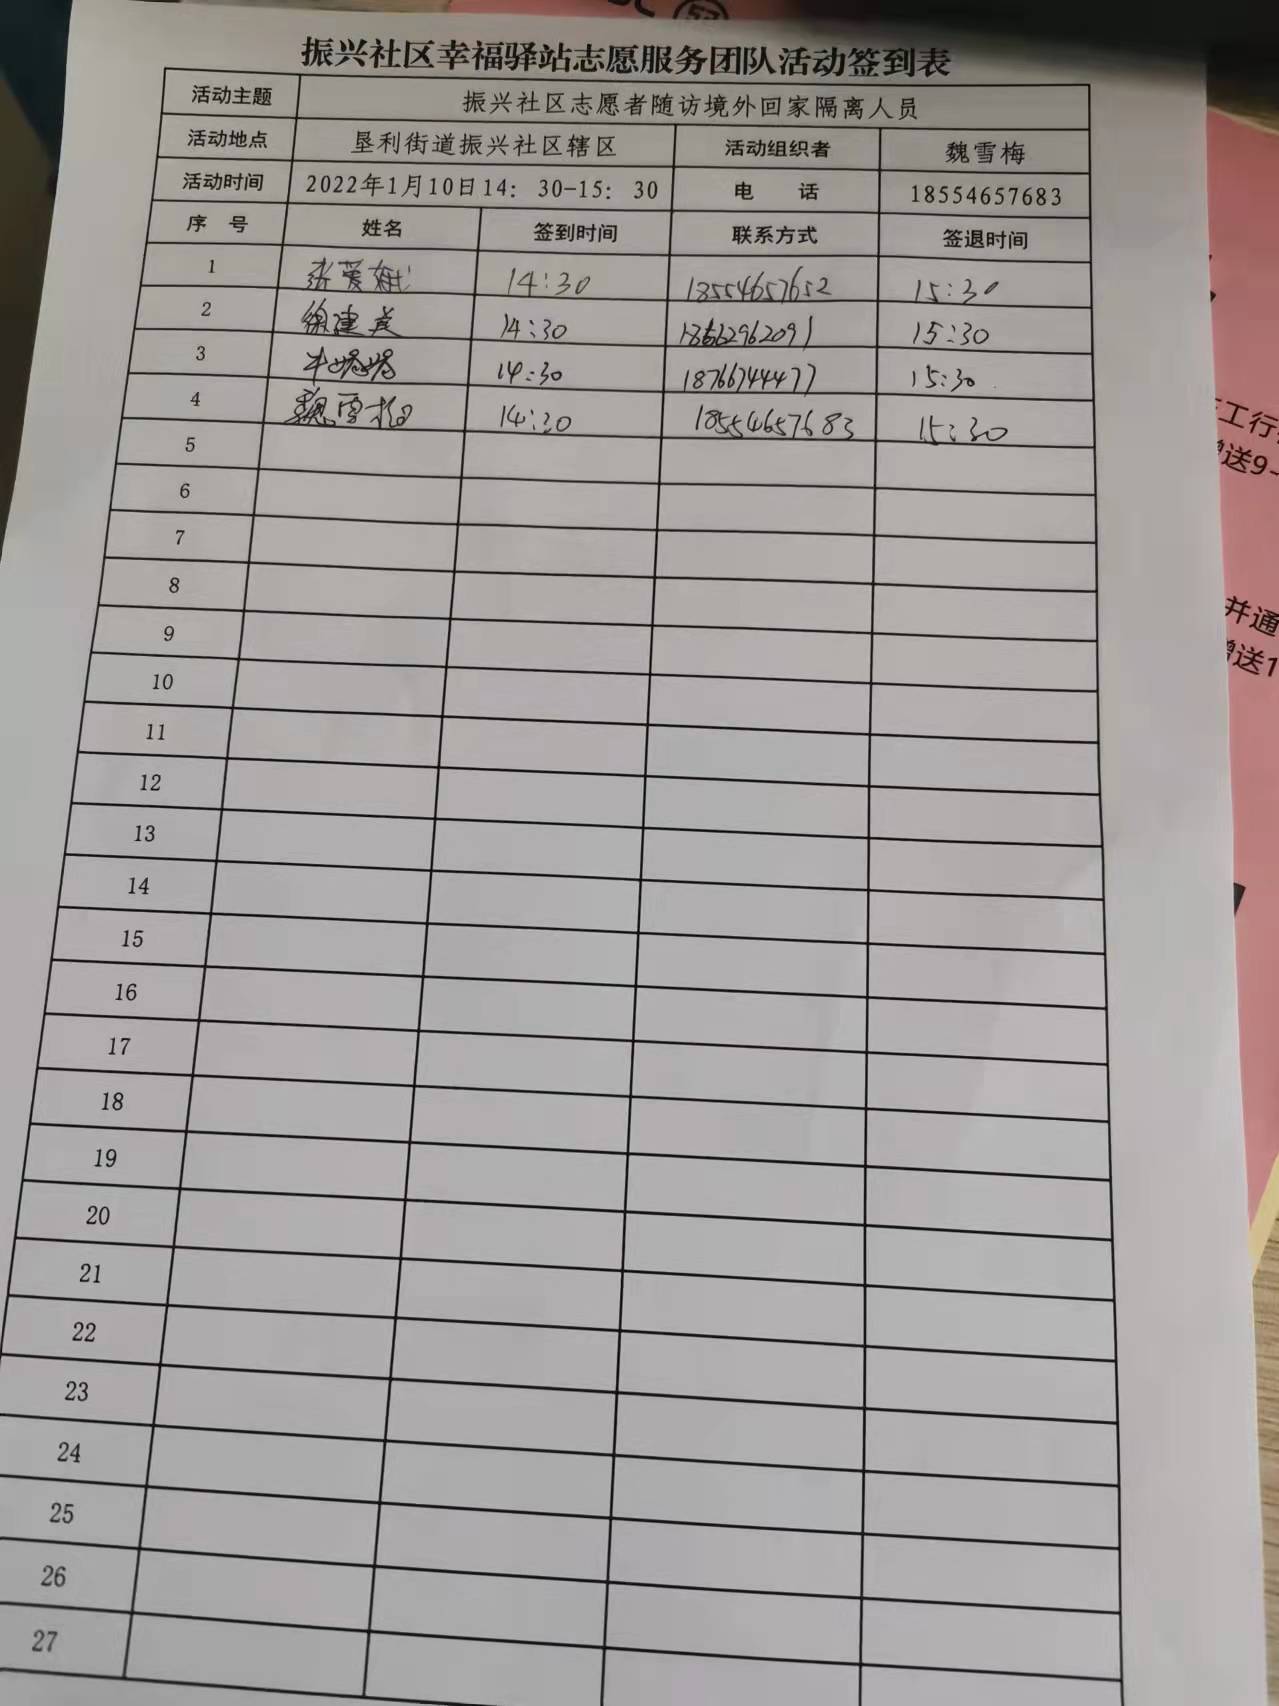 振兴社区幸福驿站志愿服务团队活动签到表
活动主题 振兴社区志愿者随访境外回家隔离人员
活动地点 垦利街道振兴社区辖区 活动组织者 魏雪梅
活动时间 2022年1月10日14：30-15：30 电 话 18554657683
序 号 姓名 签到时间 联系方式 签退时间
1 张爱 14:30 18554657652 15:30
2 徐建 14:30 15:30
3 牛 14:30 18766744477 15:30
4 魏雪梅 14:30 18554657683 15:30
5
6
7
8
9
10
11
12
13
14
15
16
17
18
19
20
21
22
23
24
25
26
27
工行
送9-
并通
赠送1